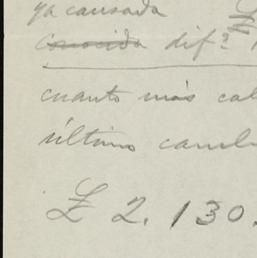 ya causada £
conocida dif.ª
cuanto más cal
último camb
£ 2.130.